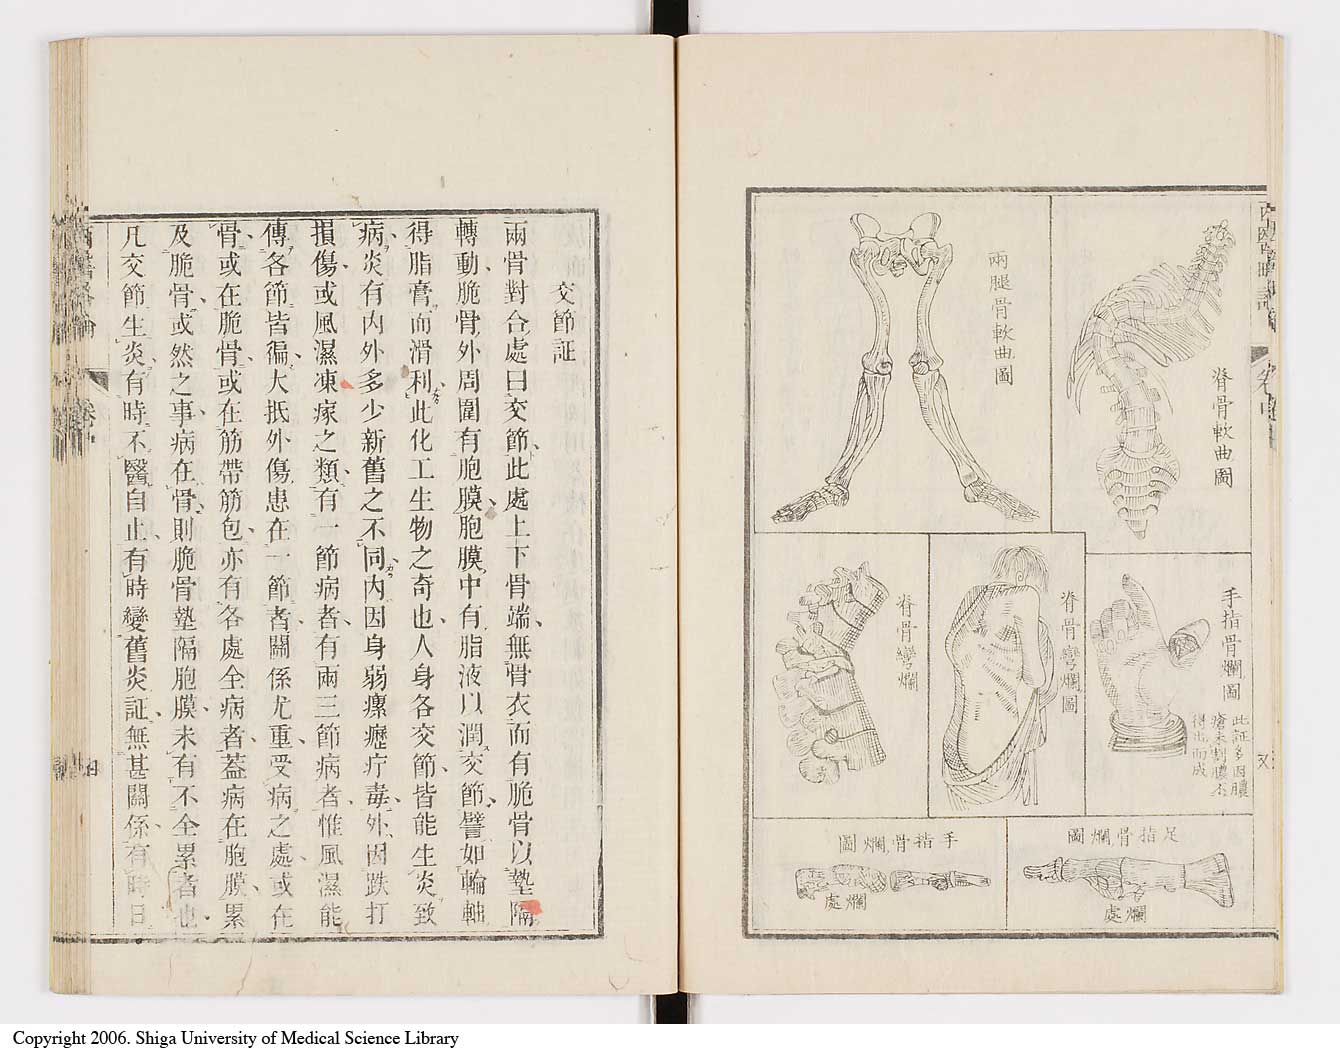 脊骨軟曲圖
兩腿骨軟曲圖
手指骨爛圖
此証多因膿
瘡未割膿不
得出而成
脊骨彎爛圖
脊骨彎爛
足指骨爛圖
爛處
手指骨爛圖
爛處
交節証
兩骨對合處曰交節此處上下骨端無骨衣而有脆骨以墊隔
轉動脆骨外周圍有胞膜胞膜中有脂液以潤交節譬如輪軸
得脂膏而滑利此化工生物之奇也人身各交節皆能生炎致
病炎有內外多少新舊之不同內因身弱瘰癧疔毒外因跌打
損傷或風濕凍瘃之類有一節病者有兩三節病者惟風濕能
傳各節皆徧大抵外傷患在一節者關係尤重受病之處或在
骨或在脆骨或在筋帶筋包亦有各處全病者葢病在胞膜累
及脆骨或然之事病在骨則脆骨墊隔胞膜未有不全累者也
凡交節生炎有時不醫自止有時變舊炎証無甚關係有時日
卷中
Copyright 2006. Shiga University of Medical Science Library